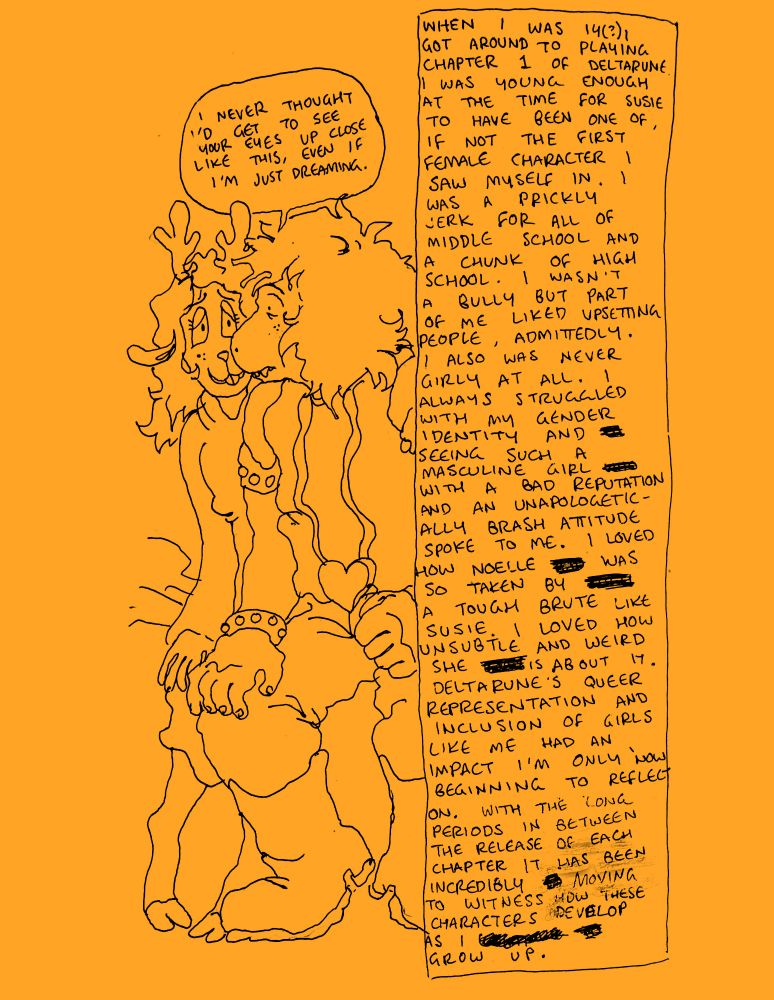 I NEVER THOUGHT
I'D GET TO SEE
YOUR EYES UP CLOSE
LIKE THIS, EVEN IF
I'M JUST DREAMING.
WHEN I WAS 14(?), I
GOT AROUND TO PLAYING
CHAPTER 1 OF DELTARUNE.
I WAS YOUNG ENOUGH
AT THE TIME FOR SUSIE
TO HAVE BEEN ONE OF,
IF NOT THE FIRST
FEMALE CHARACTER I
SAW MYSELF IN. I
WAS A PRICKLY
JERK FOR ALL OF
MIDDLE SCHOOL AND
A CHUNK OF HIGH
SCHOOL. I WASN'T
A BULLY BUT PART
OF ME LIKED UPSETTING
PEOPLE, ADMITTEDLY.
I ALSO WAS NEVER
GIRLY AT ALL. I
ALWAYS STRUGGLED
WITH MY GENDER
IDENTITY AND
SEEING SUCH A
MASCULINE GIRL
WITH A BAD REPUTATION
AND AN UNAPOLOGETIC-
ALLY BRASH ATTITUDE
SPOKE TO ME. I LOVED
HOW NOELLE WAS
SO TAKEN BY
A TOUGH BRUTE LIKE
SUSIE. I LOVED HOW
UNSUBTLE AND WEIRD
SHE IS ABOUT IT.
DELTARUNE'S QUEER
REPRESENTATION AND
INCLUSION OF GIRLS
LIKE ME HAD AN
IMPACT I'M ONLY NOW
BEGINNING TO REFLECT
ON. WITH THE LONG
PERIODS IN BETWEEN
THE RELEASE OF EACH
CHAPTER IT HAS BEEN
INCREDIBLY MOVING
TO WITNESS HOW THESE
CHARACTERS DEVELOP
AS I
GROW UP.